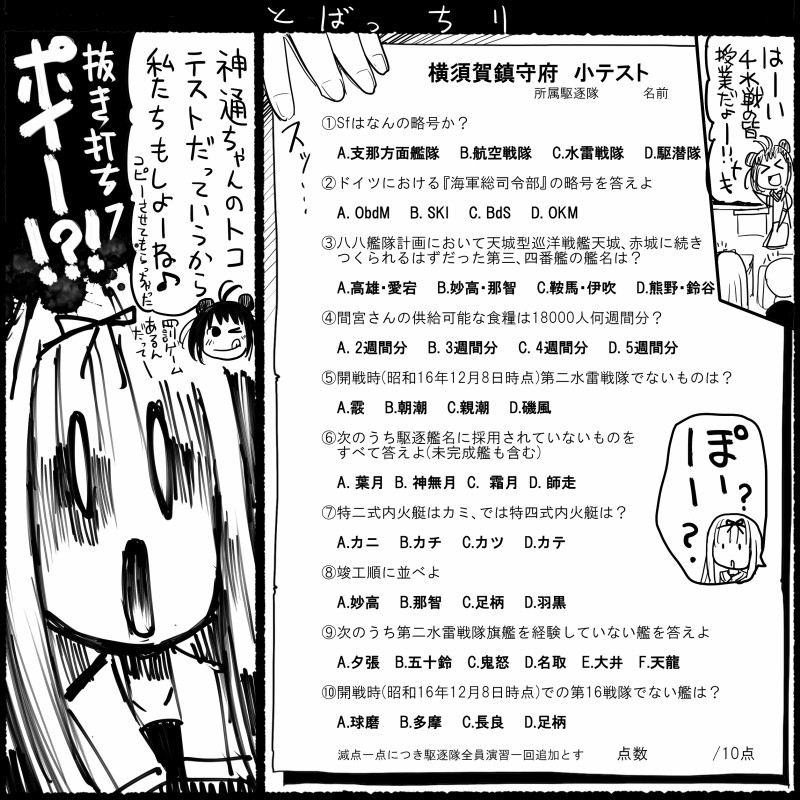 とばっちり
はーい
4水戦の皆
授業だよー!!
横須賀鎮守府 小テスト
所属駆逐隊 名前
①Sfはなんの略号か?
A.支那方面艦隊 B.航空戦隊 C.水雷戦隊 D.駆潜隊
②ドイツにおける『海軍総司令部』の略号を答えよ
A. ObdM B. SKl C. BdS D. OKM
③八八艦隊計画において天城型巡洋戦艦天城、赤城に続き
つくられるはずだった第三、四番艦の艦名は?
A.高雄・愛宕 B.妙高・那智 C.鞍馬・伊吹 D.熊野・鈴谷
④間宮さんの供給可能な食糧は18000人何週間分?
A. 2週間分 B. 3週間分 C. 4週間分 D. 5週間分
⑤開戦時(昭和16年12月8日時点)第二水雷戦隊でないものは?
A.霰 B.朝潮 C.親潮 D.磯風
⑥次のうち駆逐艦名に採用されていないものを
すべて答えよ(未完成艦も含む)
A. 葉月 B. 神無月 C. 霜月 D. 師走
⑦特二式内火艇はカミ、では特四式内火艇は?
A.カニ B.カチ C.カツ D.カテ
⑧竣工順に並べよ
A.妙高 B.那智 C.足柄 D.羽黒
⑨次のうち第二水雷戦隊旗艦を経験していない艦を答えよ
A.夕張 B.五十鈴 C.鬼怒 D.名取 E.大井 F.天龍
⑩開戦時(昭和16年12月8日時点)での第16戦隊でない艦は?
A.球磨 B.多摩 C.長良 D.足柄
減点一点につき駆逐隊全員演習一回追加とす 点数 /10点
スッ…
ぽいー?
?
神通ちゃんのトコ
テストだっていうから
私たちもしよーね♪
コピーさせてもらっちゃった
罰ゲーム
あるん
だってー
抜き打ち
ポイー!?!